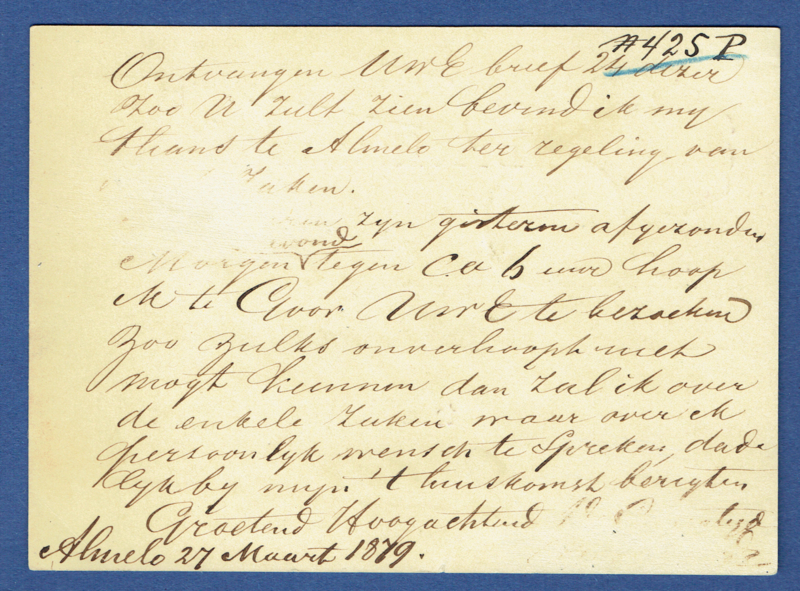 # 425 P
Ontvangen UwE brief 24 dezer
Zoo U zult zien bevind ik my
thans te Almelo ter regeling van
zaken.
zyn gisteren afgezonden
avond
Morgen tegen ca 6 uur hoop
ik te Goor UwE te bezoeken
Zoo zulks onverhoopt niet
mogt kunnen dan zal ik over
de enkele zaken waar over ik
persoonlyk wensch te spreken, dade
lyk by myn 't huiskomst berigten
Groetend Hoogachtend
Almelo 27 Maart 1879.